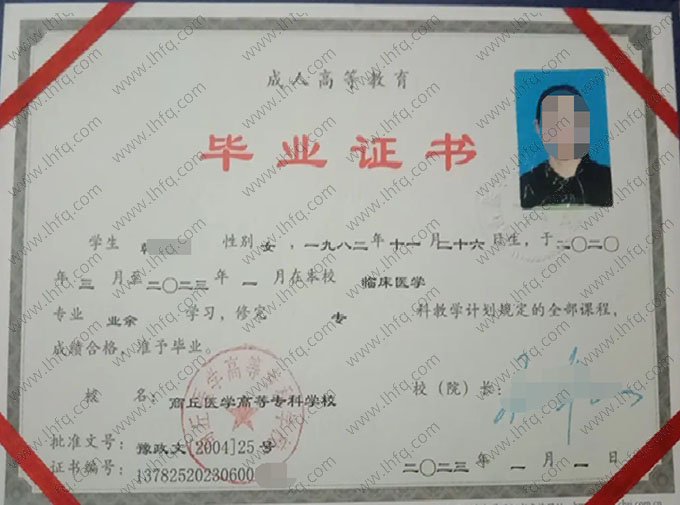 成人高等教育
毕业证书
学生 韩 性别 女 ，一九八二年 十一 月 二十六 日生，于 二〇二〇
年 三 月至 二〇二三 年 一 月在本校 临床医学
专业 业余 学习，修完 专 科教学计划规定的全部课程，
成绩合格，准予毕业。
校 名： 商丘医学高等专科学校 校（院）长：
批准文号： 豫政文[2004]25 号
证书编号： 13782520230600 二〇二三 年 一 月 一 日
www.lhfq.com